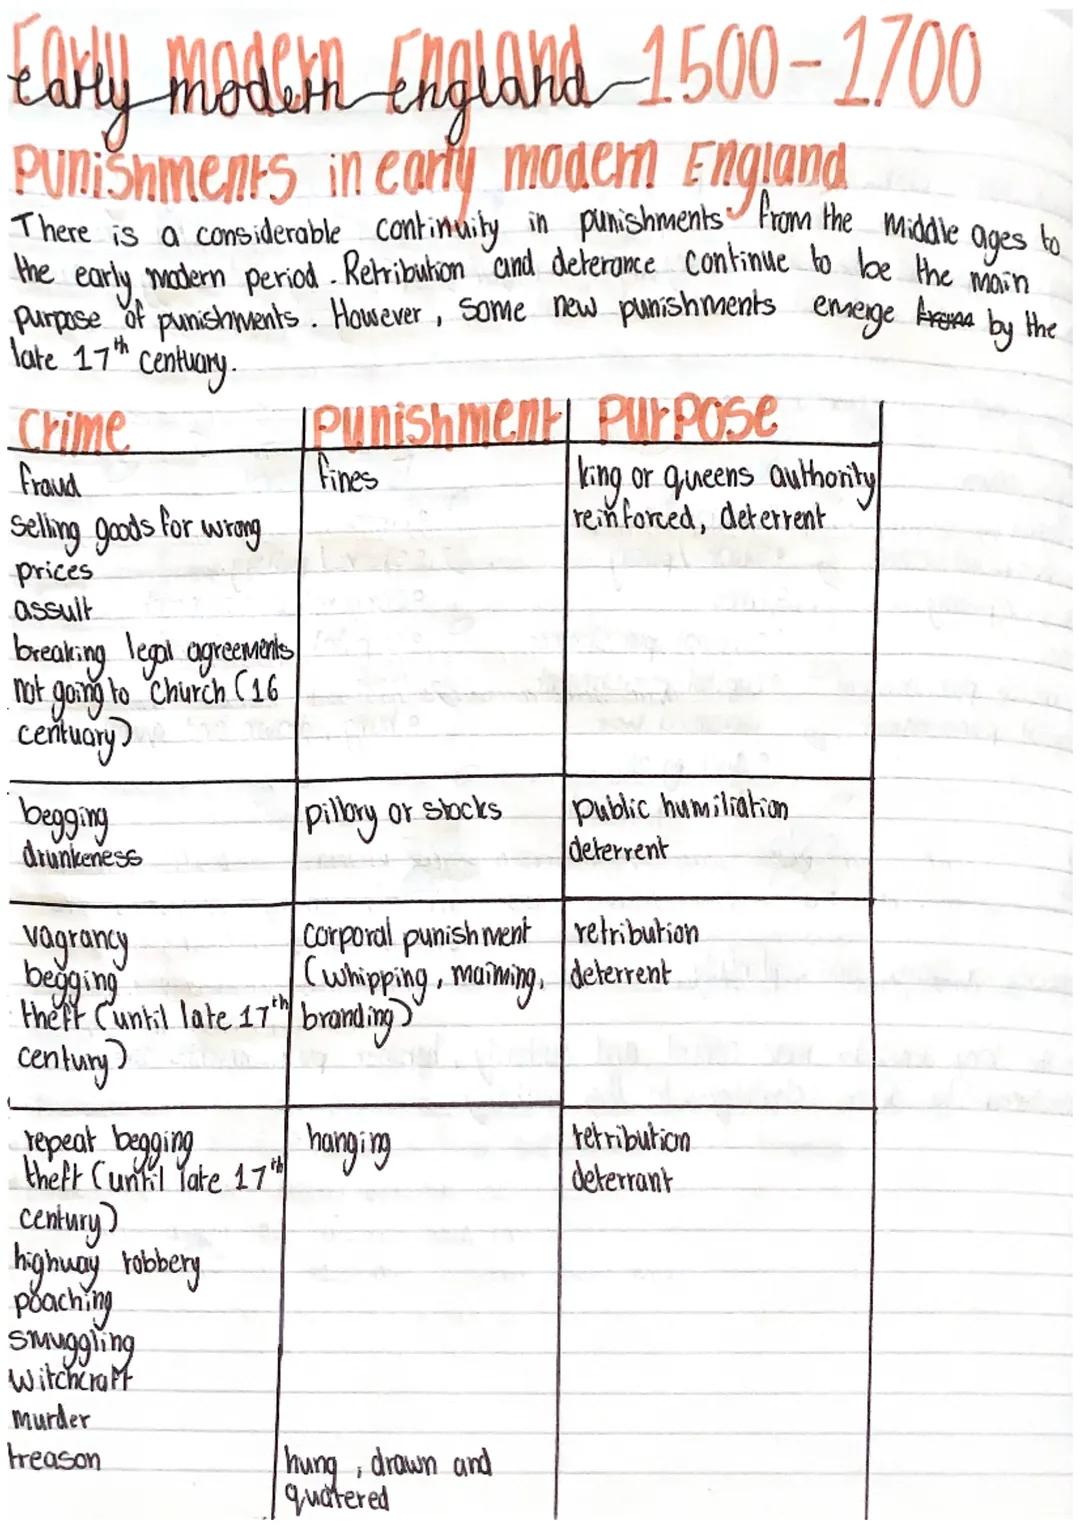 Early modern England 1500-1700
early modern england
Punishments in early modern England
There is a considerable continuity in punishments from the middle ages to
the early modern period. Retribution and deterance continue to be the main
purpose of punishments. However, some new punishments emerge from by the
late 17th centuary.
Crime Punishment Purpose
fraud fines king or queens authority
selling goods for wrong reinforced, deterrent
prices
assult
breaking legal agreements
not going to church (16
centuary)
begging pillory or stocks public humiliation
drunkeness deterrent
vagrancy corporal punishment retribution
begging (whipping, maiming, deterrent
theft (until late 17th branding)
century)
repeat begging hanging retribution
theft (until late 17th deterrant
century)
highway robbery
poaching
smuggling
witchcraft
murder
treason hung, drawn and
quatered